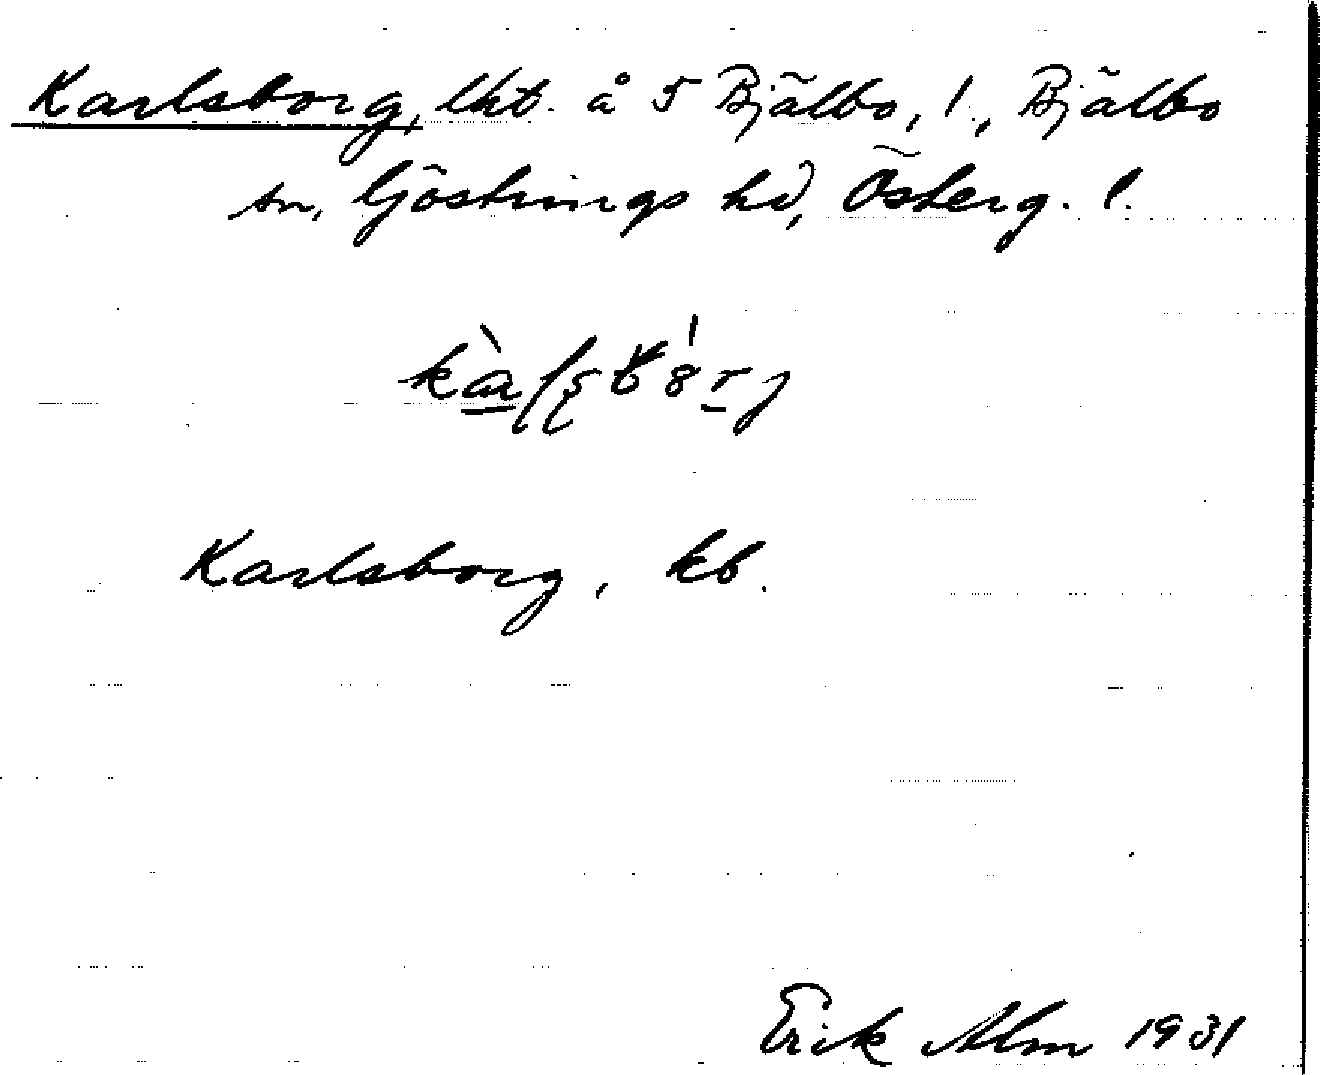 Karlsborg, lht. å 5 Bjälbo, 1., Bjälbo
sn, Göstrings hd, Österg. l.
Karlsborg, kb.
Erik Alm 1931